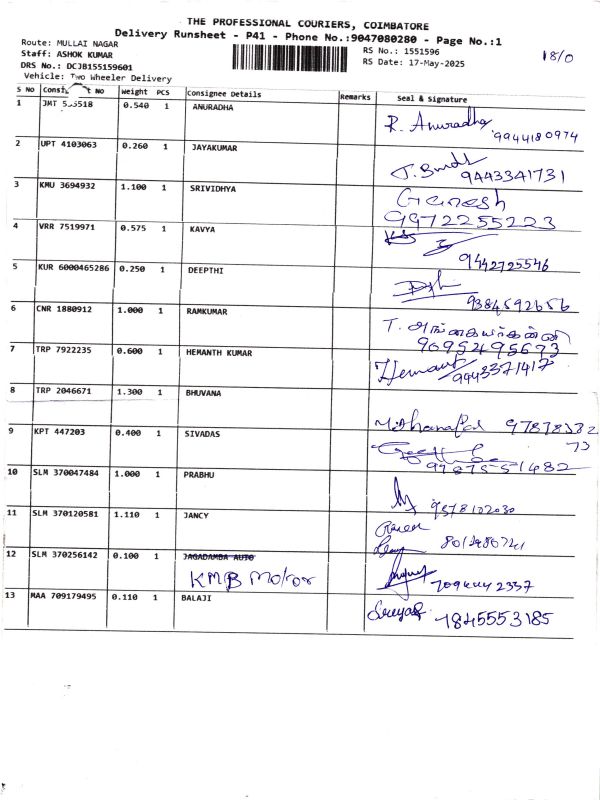 THE PROFESSIONAL COURIERS, COIMBATORE
Delivery Runsheet - P41 - Phone No.:9047080280 - Page No.:1
Route: MULLAI NAGAR
Staff: ASHOK KUMAR
DRS No.: DCJB155159601
Vehicle: Two Wheeler Delivery
RS No.: 1551596
RS Date: 17-May-2025
18/0
S NO Weight PCS Consignee Details Remarks Seal & Signature
1 JMT 0.540 1 ANURADHA R. Anuradha
9944180974
2 UPT 4103063 0.260 1 JAYAKUMAR
9443341731
3 KMU 3694932 1.100 1 SRIVIDHYA Ganesh
9972255223
4 VRR 7519971 0.575 1 KAVYA
9442725546
5 KUR 6000465286 0.250 1 DEEPTHI
9384592656
6 CNR 1880912 1.000 1 RAMKUMAR T. அங்கையர்கன்னி
9095495673
7 TRP 7922235 0.600 1 HEMANTH KUMAR Hemant
9943371417
8 TRP 2046671 1.300 1 BHUVANA
97878382
73
9 KPT 447203 0.400 1 SIVADAS
9787551482
10 SLM 370047484 1.000 1 PRABHU
9578102030
11 SLM 370120581 1.110 1 JANCY
12 SLM 370256142 0.100 1 JAGADAMBA AUTO
KMB Motor
13 MAA 709179495 0.110 1 BALAJI
7845553185